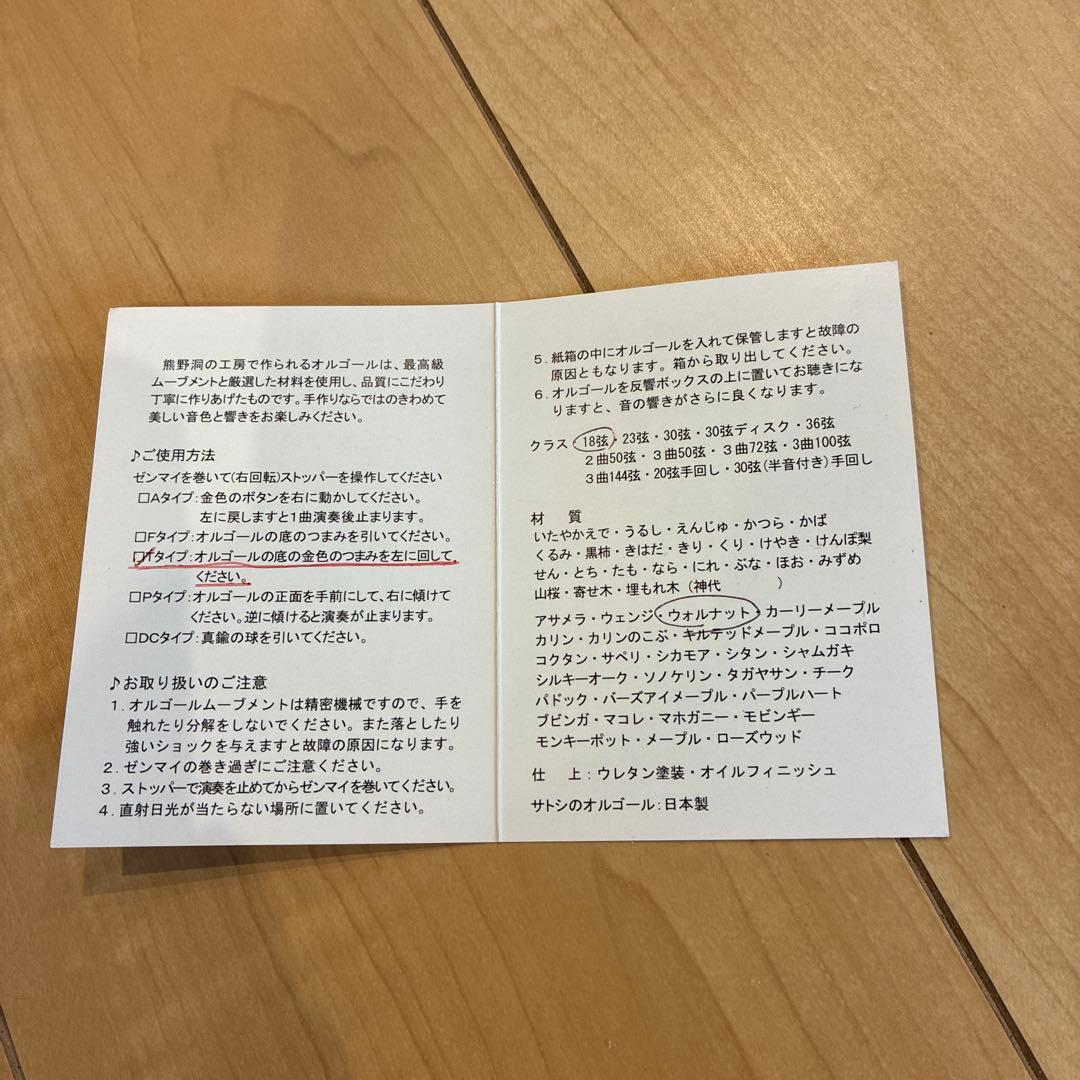 熊野洞の工房で作られるオルゴールは、最高級
ムーブメントと厳選した材料を使用し、品質にこだわり
丁寧に作りあげたものです。手作りならではのきわめて
美しい音色と響きをお楽しみください。
♪ご使用方法
ゼンマイを巻いて(右回転)ストッパーを操作してください
□Aタイプ:金色のボタンを右に動かしてください。
左に戻しますと1曲演奏後止まります。
□Fタイプ:オルゴールの底のつまみを引いてください。
□fタイプ:オルゴールの底の金色のつまみを左に回して
ください。
□Pタイプ:オルゴールの正面を手前にして、右に傾けて
ください。逆に傾けると演奏が止まります。
□DCタイプ:真鍮の球を引いてください。
♪お取り扱いのご注意
1.オルゴールムーブメントは精密機械ですので、手を
触れたり分解をしないでください。また落としたり
強いショックを与えますと故障の原因になります。
2.ゼンマイの巻き過ぎにご注意ください。
3.ストッパーで演奏を止めてからゼンマイを巻いてください。
4.直射日光が当たらない場所に置いてください。
5.紙箱の中にオルゴールを入れて保管しますと故障の
原因ともなります。箱から取り出してください。
6.オルゴールを反響ボックスの上に置いてお聴きにな
りますと、音の響きがさらに良くなります。
クラス・18弦・23弦・30弦・30弦ディスク・36弦
2曲50弦・3曲50弦・3曲72弦・3曲100弦
3曲144弦・20弦手回し・30弦(半音付き)手回し
材 質
いたやかえで・うるし・えんじゅ・かつら・かば
くるみ・黒柿・きはだ・きり・くり・けやき・けんぽ梨
せん・とち・たも・なら・にれ・ぶな・ほお・みずめ
山桜・寄せ木・埋もれ木(神代 )
アサメラ・ウェンジ・ウォルナット・カーリーメープル
カリン・カリンのこぶ・キルテッドメープル・ココボロ
コクタン・サペリ・シカモア・シタン・シャムガキ
シルキーオーク・ソノケリン・タガヤサン・チーク
パドック・バーズアイメープル・パープルハート
ブビンガ・マコレ・マホガニー・モビンギー
モンキーポット・メープル・ローズウッド
仕 上:ウレタン塗装・オイルフィニッシュ
サトシのオルゴール:日本製